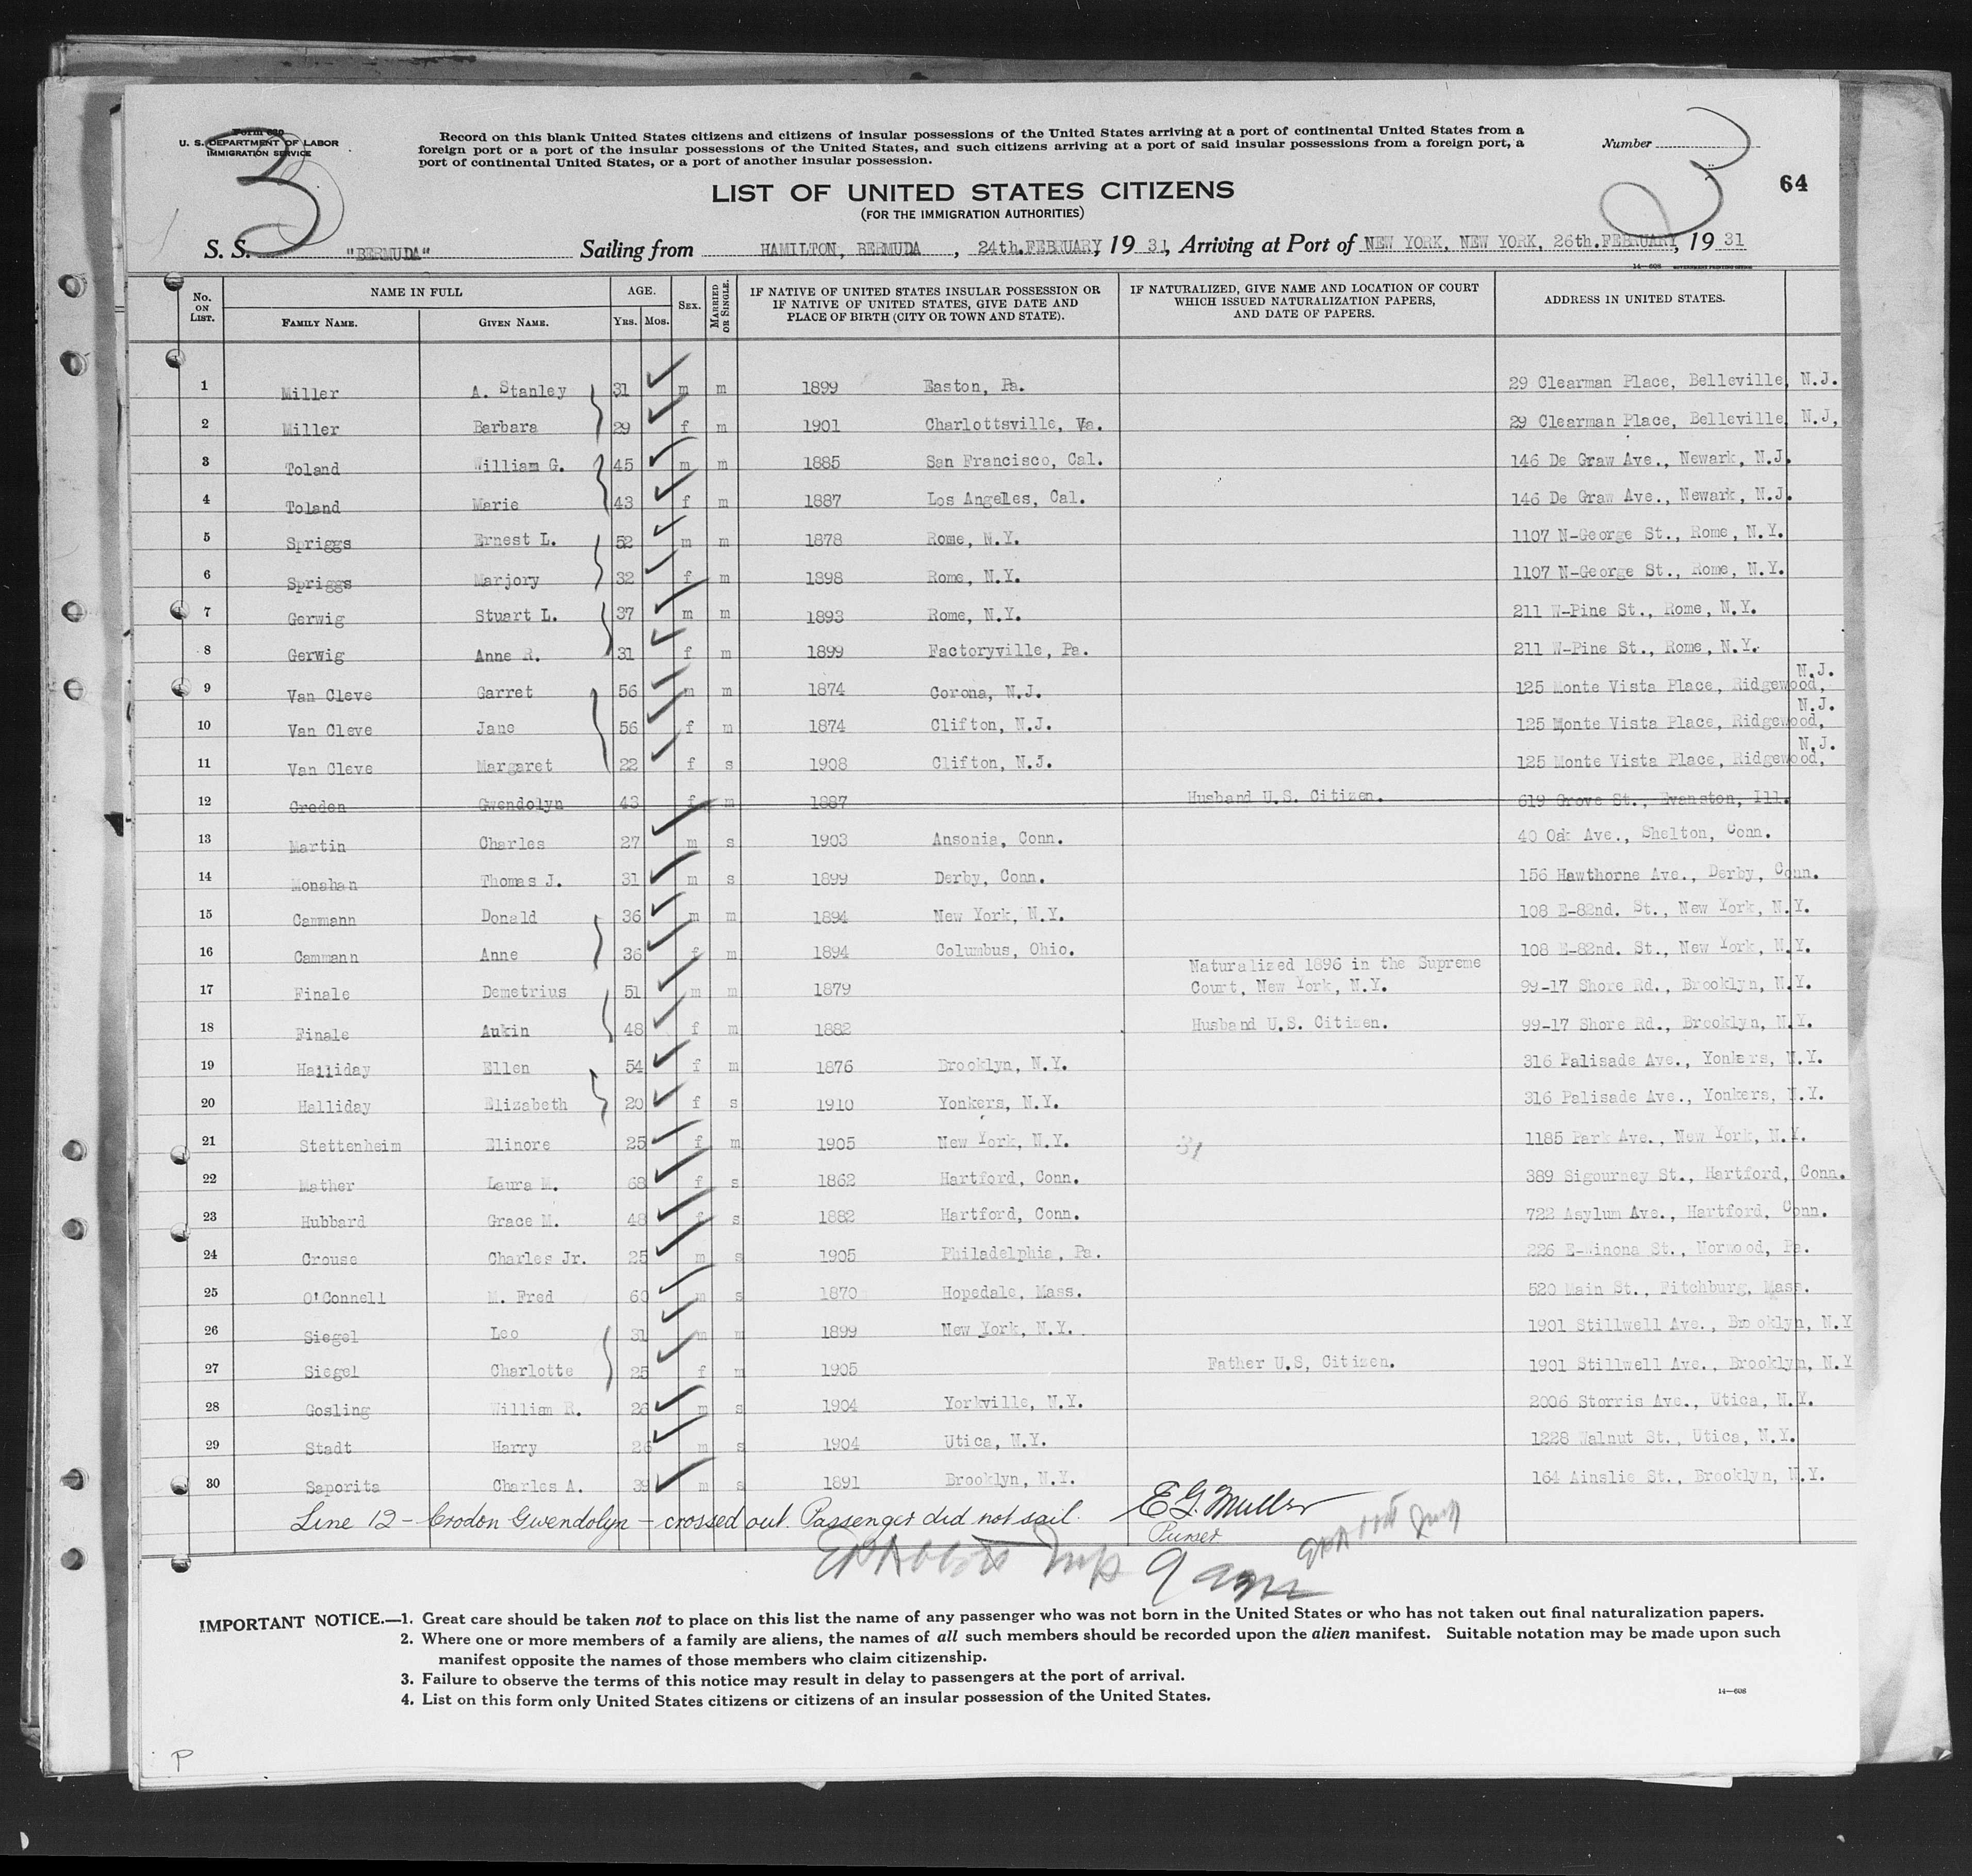 Form 630
U. S. DEPARTMENT OF LABOR
IMMIGRATION SERVICE
3
Record on this blank United States citizens and citizens of insular possessions of the United States arriving at a port of continental United States from a
foreign port or a port of the insular possessions of the United States, and such citizens arriving at a port of said insular possessions from a foreign port, a
port of continental United States, or a port of another insular possession.
Number
3
64
LIST OF UNITED STATES CITIZENS
(FOR THE IMMIGRATION AUTHORITIES)
S. S. "BERMUDA" Sailing from HAMILTON, BERMUDA, 24th.FEBRUARY, 19 31, Arriving at Port of NEW YORK, NEW YORK, 26th.FEBRUARY, 19 31
14—608 GOVERNMENT PRINTING OFFICE
No. ON LIST. NAME IN FULL FAMILY NAME. GIVEN NAME. AGE. YRS. MOS. SEX. MARRIED OR SINGLE. IF NATIVE OF UNITED STATES INSULAR POSSESSION OR IF NATIVE OF UNITED STATES, GIVE DATE AND PLACE OF BIRTH (CITY OR TOWN AND STATE). IF NATURALIZED, GIVE NAME AND LOCATION OF COURT WHICH ISSUED NATURALIZATION PAPERS, AND DATE OF PAPERS. ADDRESS IN UNITED STATES.
1 Miller A. Stanley 31 m m 1899 Easton, Pa. 29 Clearman Place, Belleville, N.J.
2 Miller Barbara 29 f m 1901 Charlottsville, Va. 29 Clearman Place, Belleville, N.J,
3 Toland William G. 45 m m 1885 San Francisco, Cal. 146 De Graw Ave., Newark, N.J.
4 Toland Marie 43 f m 1887 Los Angelles, Cal. 146 De Graw Ave., Newark, N.J.
5 Spriggs Ernest L. 52 m m 1878 Rome, N.Y. 1107 N-George St., Rome, N.Y.
6 Spriggs Marjory 32 f m 1898 Rome, N.Y. 1107 N-George St., Rome, N.Y.
7 Gerwig Stuart L. 37 m m 1893 Rome, N.Y. 211 W-Pine St., Rome, N.Y.
8 Gerwig Anne R. 31 f m 1899 Factoryville, Pa. 211 W-Pine St., Rome, N.Y.
9 Van Cleve Garret 56 m m 1874 Corona, N.J. 125 Monte Vista Place, Ridgewood, N.J.
10 Van Cleve Jane 56 f m 1874 Clifton, N.J. 125 Monte Vista Place, Ridgewood, N.J.
11 Van Cleve Margaret 22 f s 1908 Clifton, N.J. 125 Monte Vista Place, Ridgewood, N.J.
12 Creden Gwendolyn 43 f m 1887 Husband U.S. Citizen. 619 Grove St., Evanston, Ill.
13 Martin Charles 27 m s 1903 Ansonia, Conn. 40 Oak Ave., Shelton, Conn.
14 Monahan Thomas J. 31 m s 1899 Derby, Conn. 156 Hawthorne Ave., Derby, Conn.
15 Cammann Donald 36 m m 1894 New York, N.Y. 108 E-82nd. St., New York, N.Y.
16 Cammann Anne 36 f m 1894 Columbus, Ohio. 108 E-82nd. St., New York, N.Y.
17 Finale Demetrius 51 m m 1879 Naturalized 1896 in the Supreme Court, New York, N.Y. 99-17 Shore Rd., Brooklyn, N.Y.
18 Finale Aukin 48 f m 1882 Husband U.S. Citizen. 99-17 Shore Rd., Brooklyn, N.Y.
19 Halliday Ellen 54 f m 1876 Brooklyn, N.Y. 316 Palisade Ave., Yonkers, N.Y.
20 Halliday Elizabeth 20 f s 1910 Yonkers, N.Y. 316 Palisade Ave., Yonkers, N.Y.
21 Stettenheim Elinore 25 f m 1905 New York, N.Y. 31 1185 Park Ave., New York, N.Y.
22 Mather Laura M. 68 f s 1862 Hartford, Conn. 389 Sigourney St., Hartford, Conn.
23 Hubbard Grace M. 48 f s 1882 Hartford, Conn. 722 Asylum Ave., Hartford, Conn.
24 Crouse Charles Jr. 25 m s 1905 Philadelphia, Pa. 226 E-Winona St., Norwood, Pa.
25 O'Connell M. Fred 60 m s 1870 Hopedale, Mass. 520 Main St., Fitchburg, Mass.
26 Siegel Leo 31 m m 1899 New York, N.Y. 1901 Stillwell Ave., Brooklyn, N.Y
27 Siegel Charlotte 25 f m 1905 Father U.S, Citizen. 1901 Stillwell Ave., Brooklyn, N.Y
28 Gosling William R. 26 m s 1904 Yorkville, N.Y. 2006 Storris Ave., Utica, N.Y.
29 Stadt Harry 26 m s 1904 Utica, N.Y. 1228 Walnut St., Utica, N.Y.
30 Saporita Charles A. 39 m s 1891 Brooklyn, N.Y. 164 Ainslie St., Brooklyn, N.Y.
Line 12 - Croden Gwendolyn - crossed out. Passenger did not sail. E G. Muller
Purser
IMPORTANT NOTICE.—1. Great care should be taken not to place on this list the name of any passenger who was not born in the United States or who has not taken out final naturalization papers.
2. Where one or more members of a family are aliens, the names of all such members should be recorded upon the alien manifest. Suitable notation may be made upon such
manifest opposite the names of those members who claim citizenship.
3. Failure to observe the terms of this notice may result in delay to passengers at the port of arrival.
4. List on this form only United States citizens or citizens of an insular possession of the United States.
14—608
P